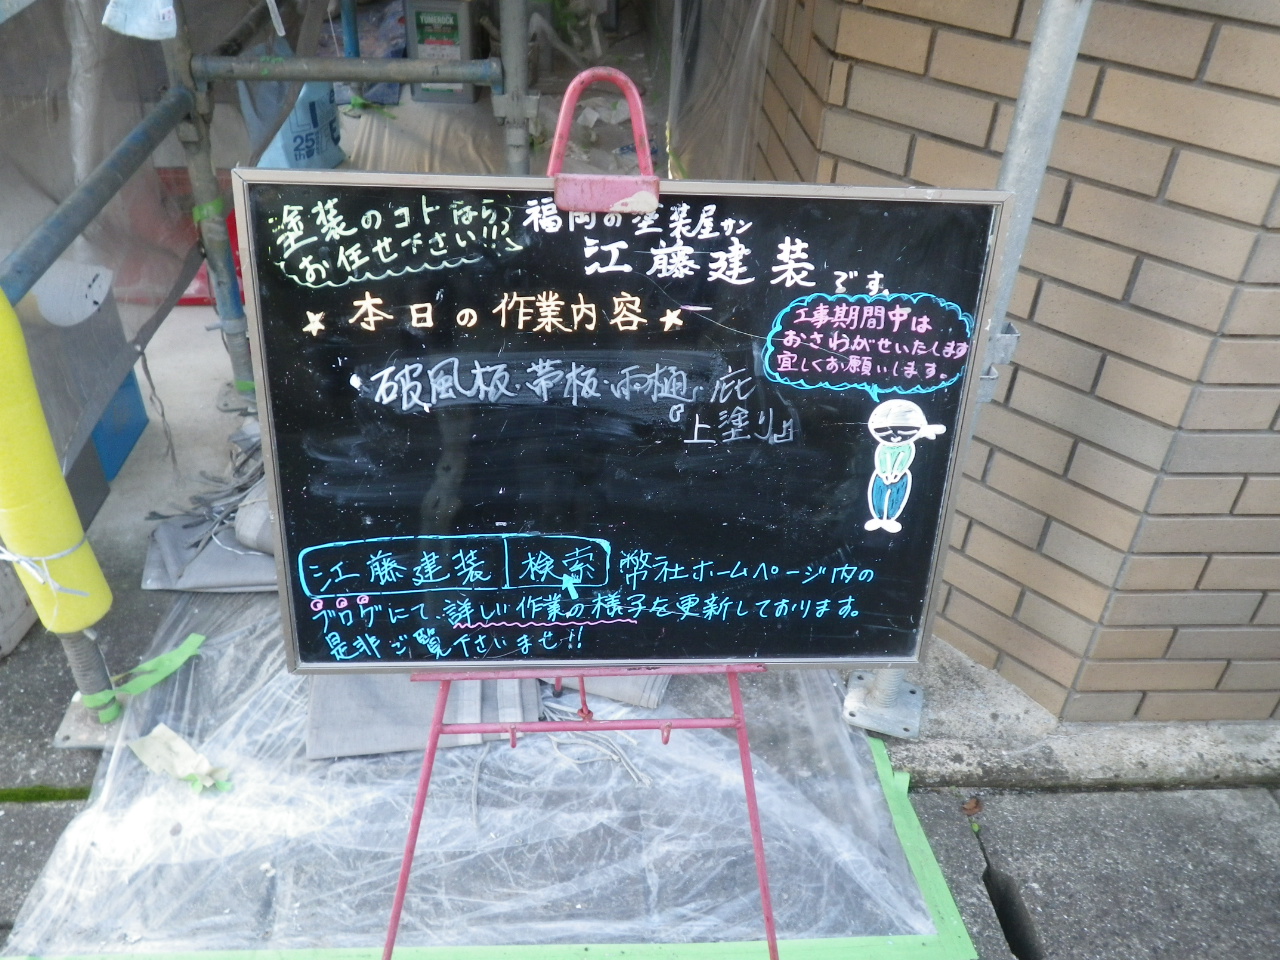 塗装のコトなら
お任せ下さい!!!
福岡の塗装屋サン
江藤建装です。
★本日の作業内容★
工事期間中は
おさわがせいたします
宜しくお願いします。
破風板・帯板・雨樋・庇
『上塗り』
江藤建装 検索 弊社ホームページ内の
ブログにて、詳しい作業の様子を更新しております。
是非ご覧下さいませ!!
YUMEROCK
25